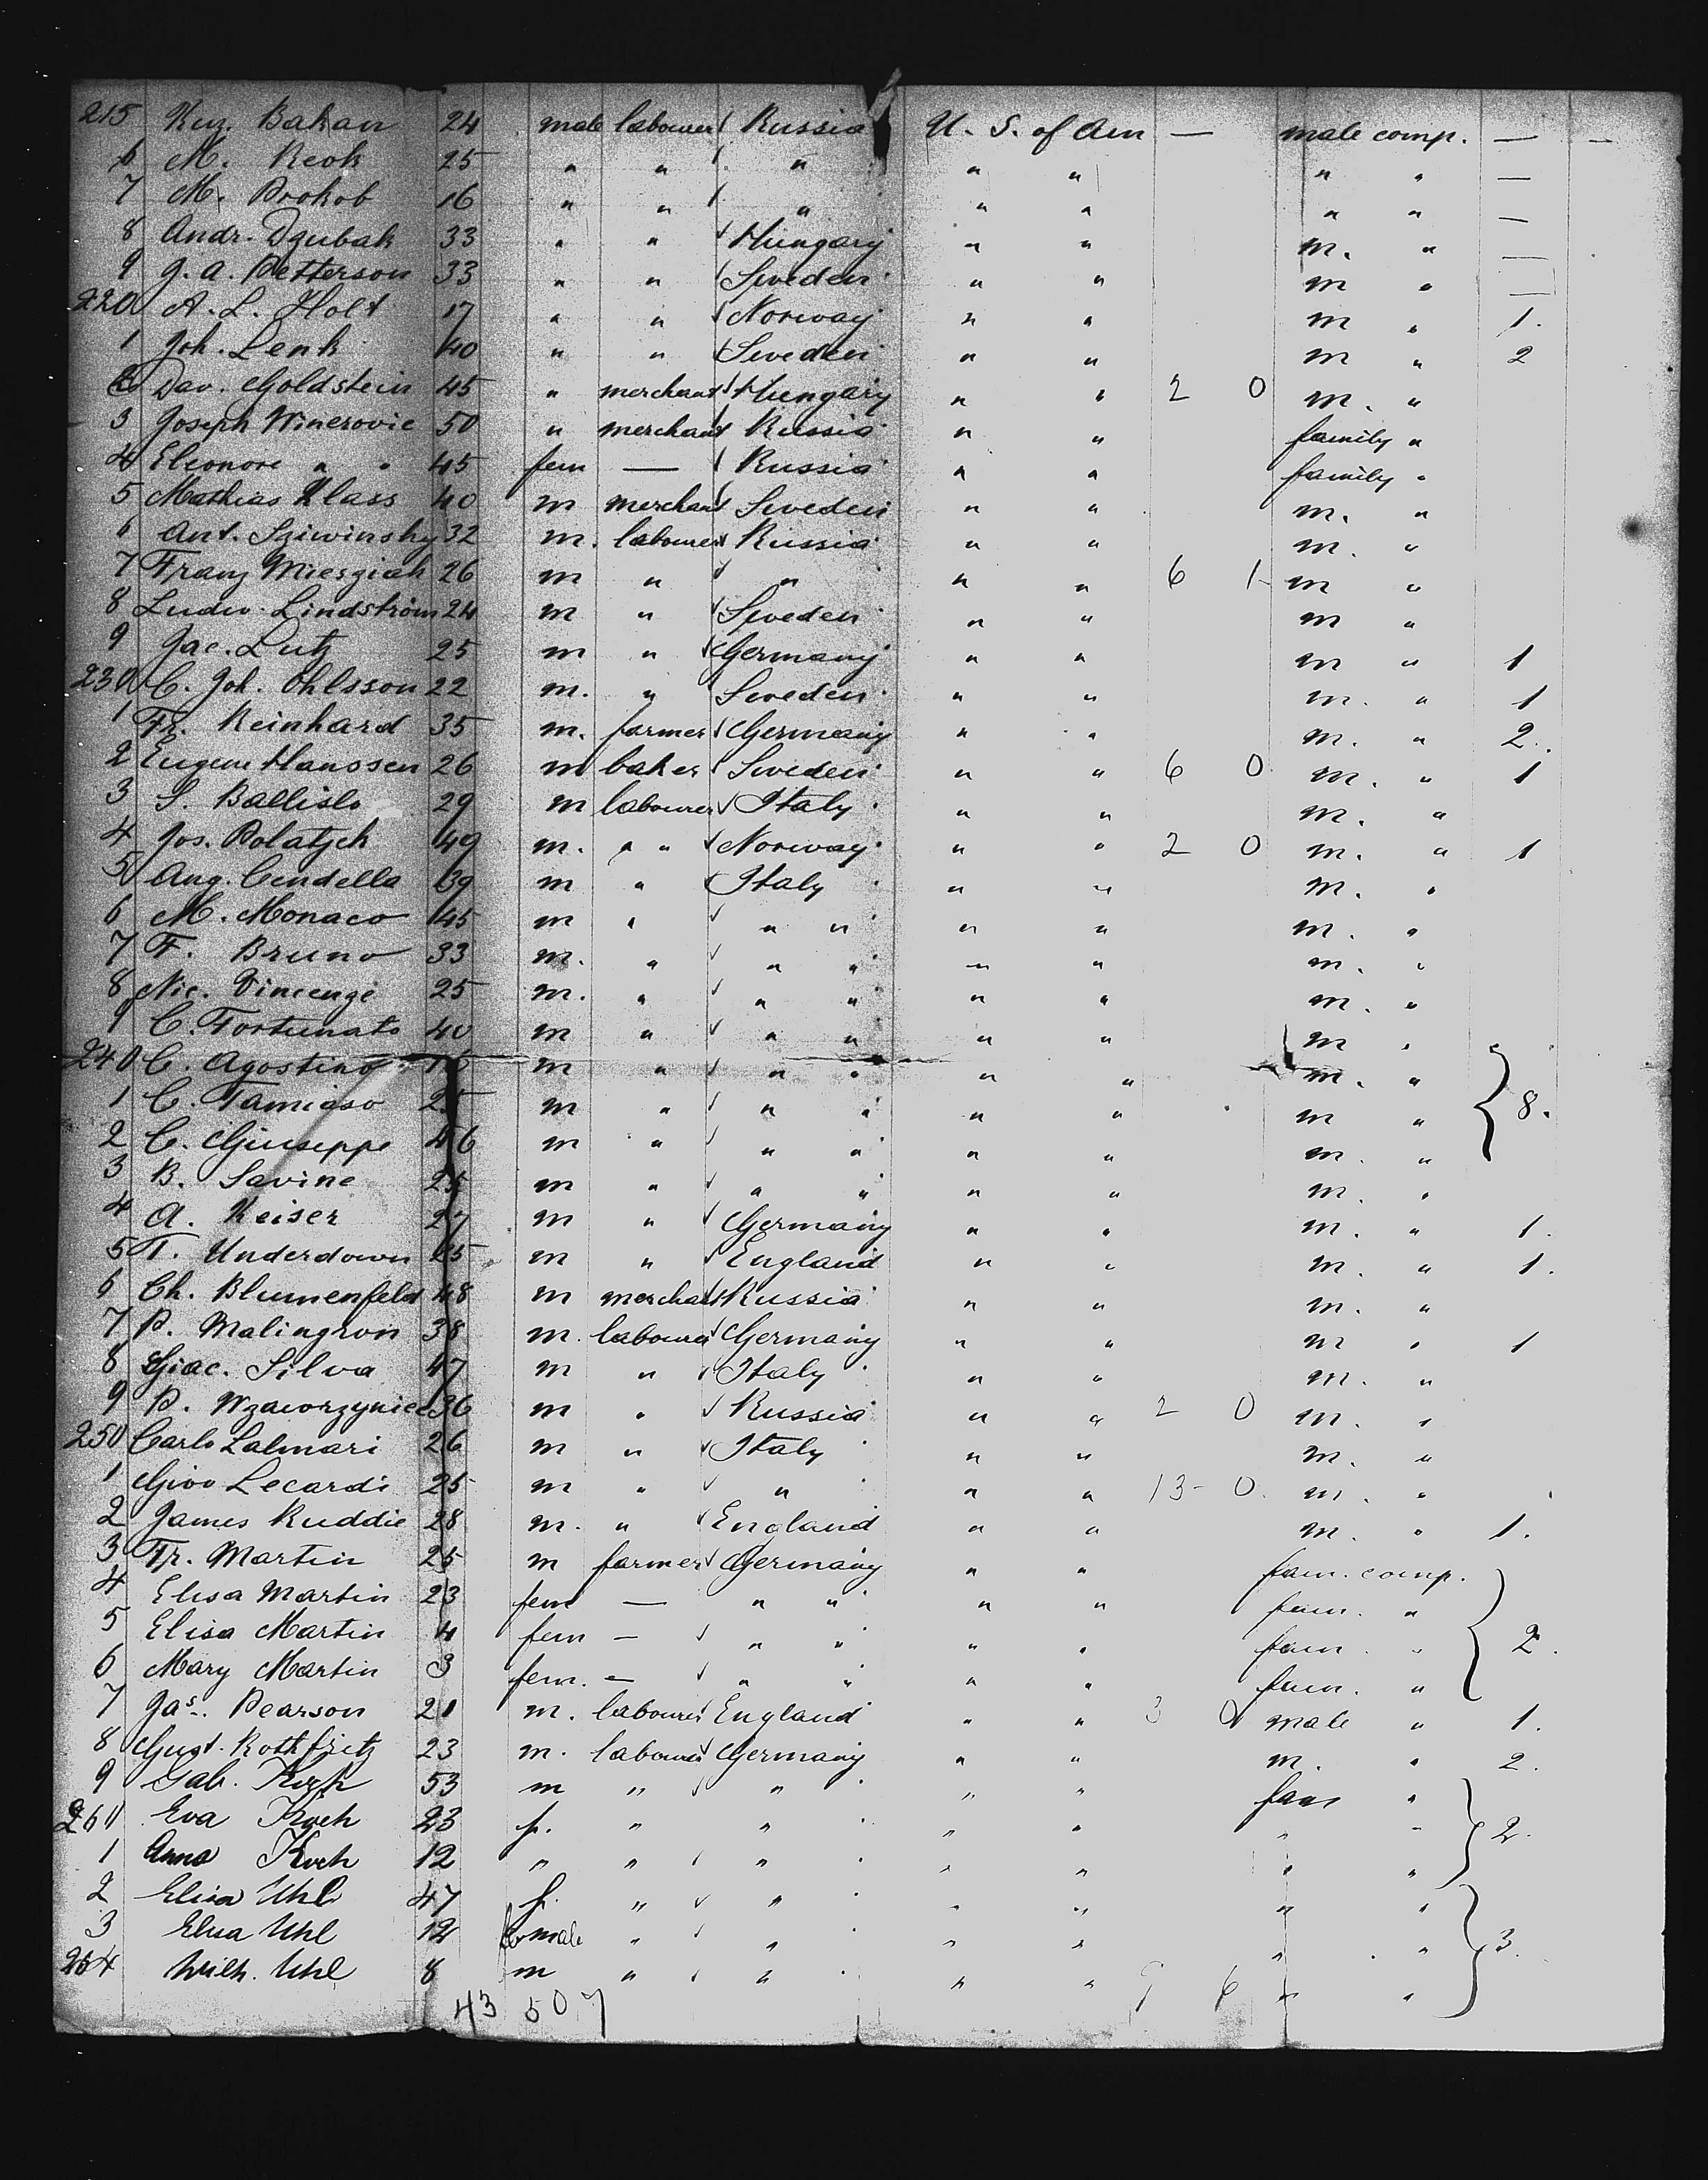 215 Kuz. Bakan 24 male labourer Russia U. S. of Am — male comp. — —
6 M. Reok 25 " " " " " " " —
7 M. Prokob 16 " " " " " " " —
8 Andr. Dzubak 33 " " Hungary " " m. " —
9 J. A. Petterson 33 " " Sweden " " m " —
220 A. L. Holt 17 " " Norway " " m " 1.
1 Joh. Lenk 40 " " Sweden " " m " 2
2 Dav. Goldstein 45 " merchant Hungary " " 2 0 m. "
3 Joseph Winerovic 50 " merchant Russia " " family "
4 Eleonore " " 45 fem — Russia " " family "
5 Mathias Klass 40 m merchant Sweden " " m. "
6 Ant. Sziwinsky 32 m. labourer Russia " " m. "
7 Franz Miesziak 26 m " " " " 6 1 m "
8 Ludw. Lindström 24 m " Sweden " " m "
9 Jac. Lutz 25 m " Germany " " m " 1
230 C. Joh. Ohlsson 22 m. " Sweden " " m. " 1
1 Fr. Reinhard 35 m. farmer Germany " " m. " 2.
2 Eugene Hanssen 26 m baker Sweden " " 6 0 m. " 1
3 S. Ballislo 29 m labourer Italy " " m. "
4 Jos. Polatzek 49 m. " " Norway " " 2 0 m. " 1
5 Aug. Cendella 39 m " Italy " " m. "
6 M. Monaco 45 m " " " " " m. "
7 F. Bruno 33 m. " " " " " m. "
8 Nic. Vincenzi 25 m. " " " " " m. "
9 C. Fortunato 40 m " " " " " m "
240 C. Agostino m " " " " " m. "
1 C. Tamiaso 25 m " " " " " m " 8.
2 C. Giuseppe 46 m " " " " " m. "
3 B. Savine 25 m " " " " " m. "
4 A. Keiser 27 m " Germany " " m. " 1.
5 T. Underdown 25 m " England " " m. " 1.
6 Ch. Blumenfeld 48 m merchant Russia " " m. "
7 P. Malingron 38 m. labourer Germany " " m " 1
8 Giac. Silva 47 m " Italy " " m. "
9 P. Wzaworzyniec 36 m " Russia " " 2 0 m. "
250 Carlo Lalmari 26 m " Italy " " m. "
1 Giov Lecardi 25 m " " " " 13 - 0. m. "
2 James Ruddie 28 m. " England " " m. " 1.
3 Fr. Martin 25 m farmer Germany " " fam. comp.
4 Elisa Martin 23 fem — " " " " fam. "
5 Elisa Martin 4 fem — " " " " fam. " 2.
6 Mary Martin 3 fem. — " " " " fam. "
7 Jas. Pearson 21 m. labourer England " " 3 0 male " 1.
8 Gust. Rothfritz 23 m. labourer Germany " " m. " 2.
9 Gab. Koch 53 m " " " " fam "
260 Eva Koch 23 f. " " " " " " 2.
1 Anna Koch 12 " " " " " " "
2 Elisa Uhl 47 f. " " " " " "
3 Elisa Uhl 12 female " " " " " " 3.
264 Wilh. Uhl 8 m " " " " 9 6 " "
43 507